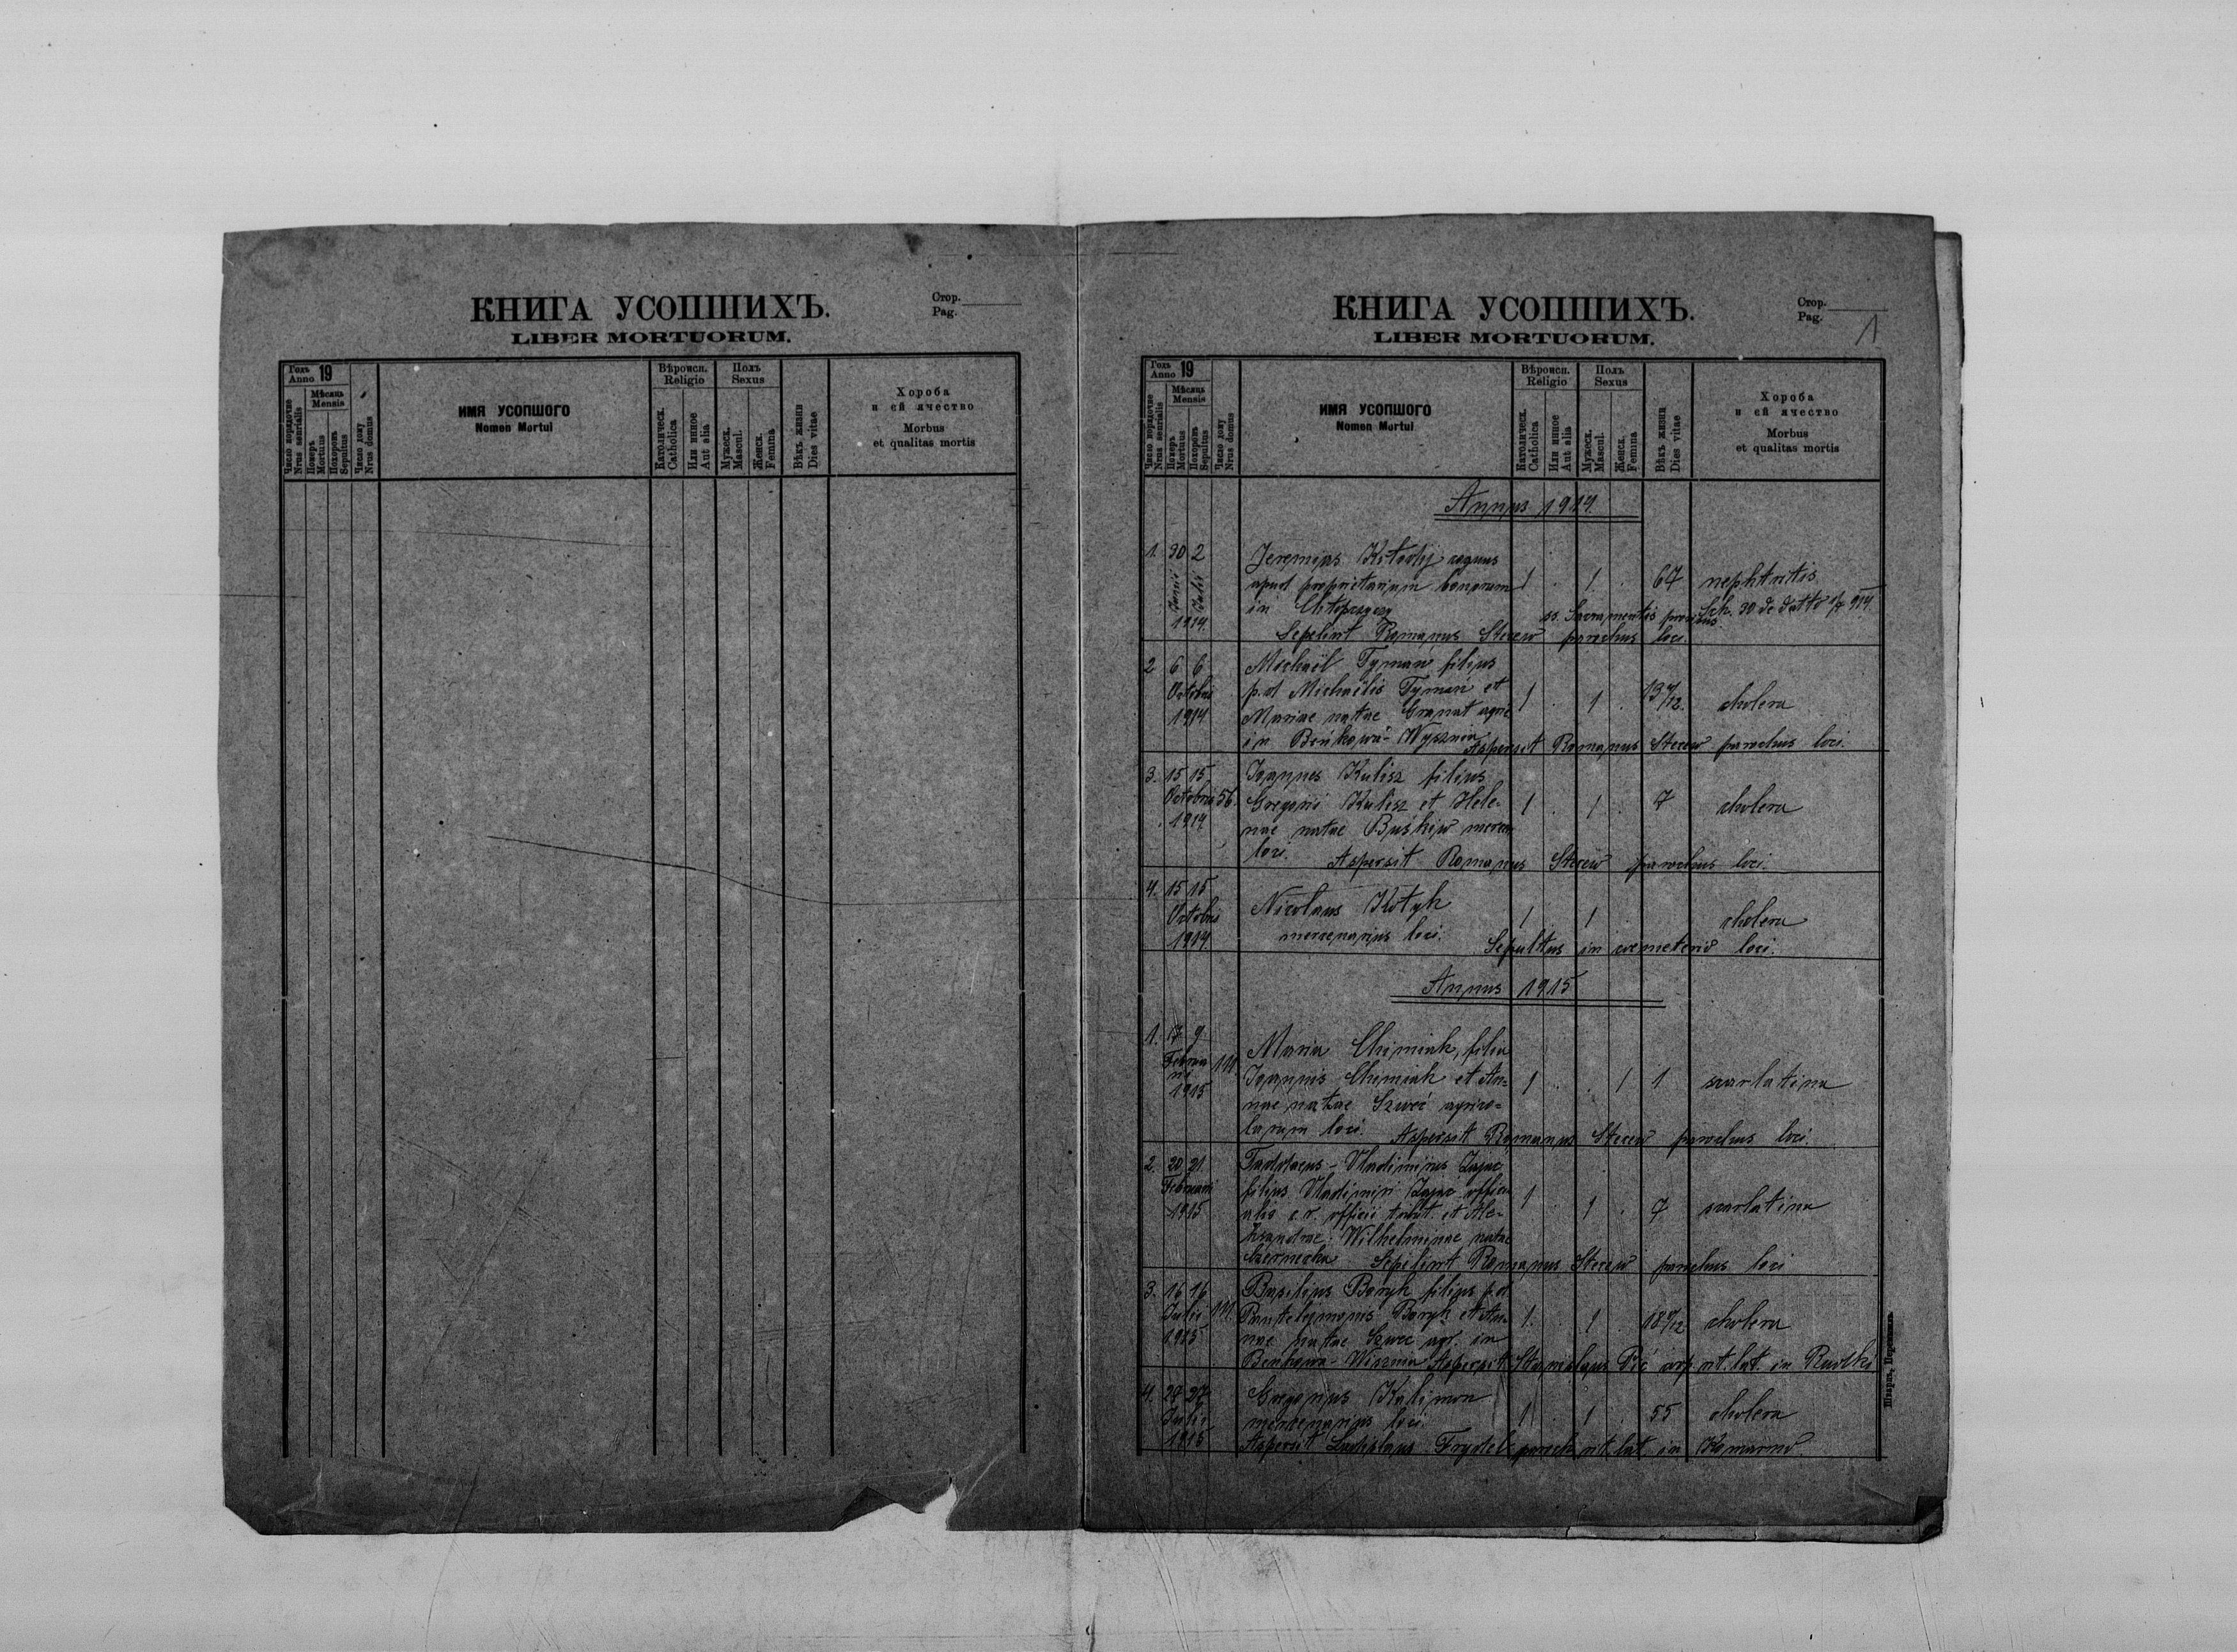 КНИГА УСОПШИХЪ.
LIBER MORTUORUM.
Стор.
Pag.
Годъ
Anno 19
Мѣсяць
Mensis
Число порядочне
Nrus serialis
Померъ
Mortuus
Похоронъ
Sepultus
Число дому
Nrus domus
ИМЯ УСОПШОГО
Nomen Mortui
Вѣроисп.
Religio
Католическ.
Catholica
Или инное
Aut alia
Полъ
Sexus
Мужеск.
Mascul.
Женск.
Femina
Вѣкъ жизни
Dies vitae
Хороба
и ей ячество
Morbus
et qualitas mortis
КНИГА УСОПШИХЪ.
LIBER MORTUORUM.
Стор.
Pag.
1
Годъ
Anno 19
Мѣсяць
Mensis
Число порядочне
Nrus serialis
Померъ
Mortuus
Похоронъ
Sepultus
Число дому
Nrus domus
ИМЯ УСОПШОГО
Nomen Mortui
Вѣроисп.
Religio
Католическ.
Catholica
Или инное
Aut alia
Полъ
Sexus
Мужеск.
Mascul.
Женск.
Femina
Вѣкъ жизни
Dies vitae
Хороба
и ей ячество
Morbus
et qualitas mortis
Annus 1914.
1. 30 2 Jeremias
Junii Julii apud proprietarium bonorum 1 . 1 . 67 nephritis
in ss. Sacramentis
1914. Sepelivit Romanus Steciw parochus loci.
2 6 6 Michaël Tyman filius
Octobris p.d Michaëlis Tyman et 1 . 1 . cholera
1914 Mariae natae Granat
in Beńkowa-Wysznia Aspersit Romanus Steciw parochus loci.
3. 15 15 Joannes Kulisz filius
Octobris 56. Gregorii Kulisz et Hele- 1 . 1 . 7 cholera
1914 nae natae Buśkiw
loci. Aspersit Romanus Steciw parochus loci.
4. 15 15 Nicolaus Kotyk
Octobris 1 1 cholera
1914. mercenarius loci. Sepultus in coemeterio loci.
Annus 1915
1. 9 Maria Chimiak, filia
Februa
rii 111 Joannis Chimiak et An= 1 . . 1 1 scarlatina
1915 nae natae Szweć agrico=
larum loci. Aspersit Romanus Steciw parochus loci.
2. 20 21. Taddaeus-Vladimirus Zając
Februarii filius Vladimiri Zając 1 . 1 . 7 scarlatina
1915 officii et Ale-
ksandrae-Wilhelminae natae
Sepelivit Romanus Steciw parochus loci
3. 16 16 Basilius Baryk filius p.d
Julii 111 Panteleimonis Baryk et An- 1. . 1 . cholera
1915 nae natae Szwec agr. in
Beńkowa-Wisznia Aspersit Stanislaus rit. lat. in Rudki
4. 27 27 Gregorius Kalimon
Julii mercenarius loci. 1 . 1 . 55 cholera
1915 Aspersit Ladislaus Frydel paroch. rit. lat. in Komarno.